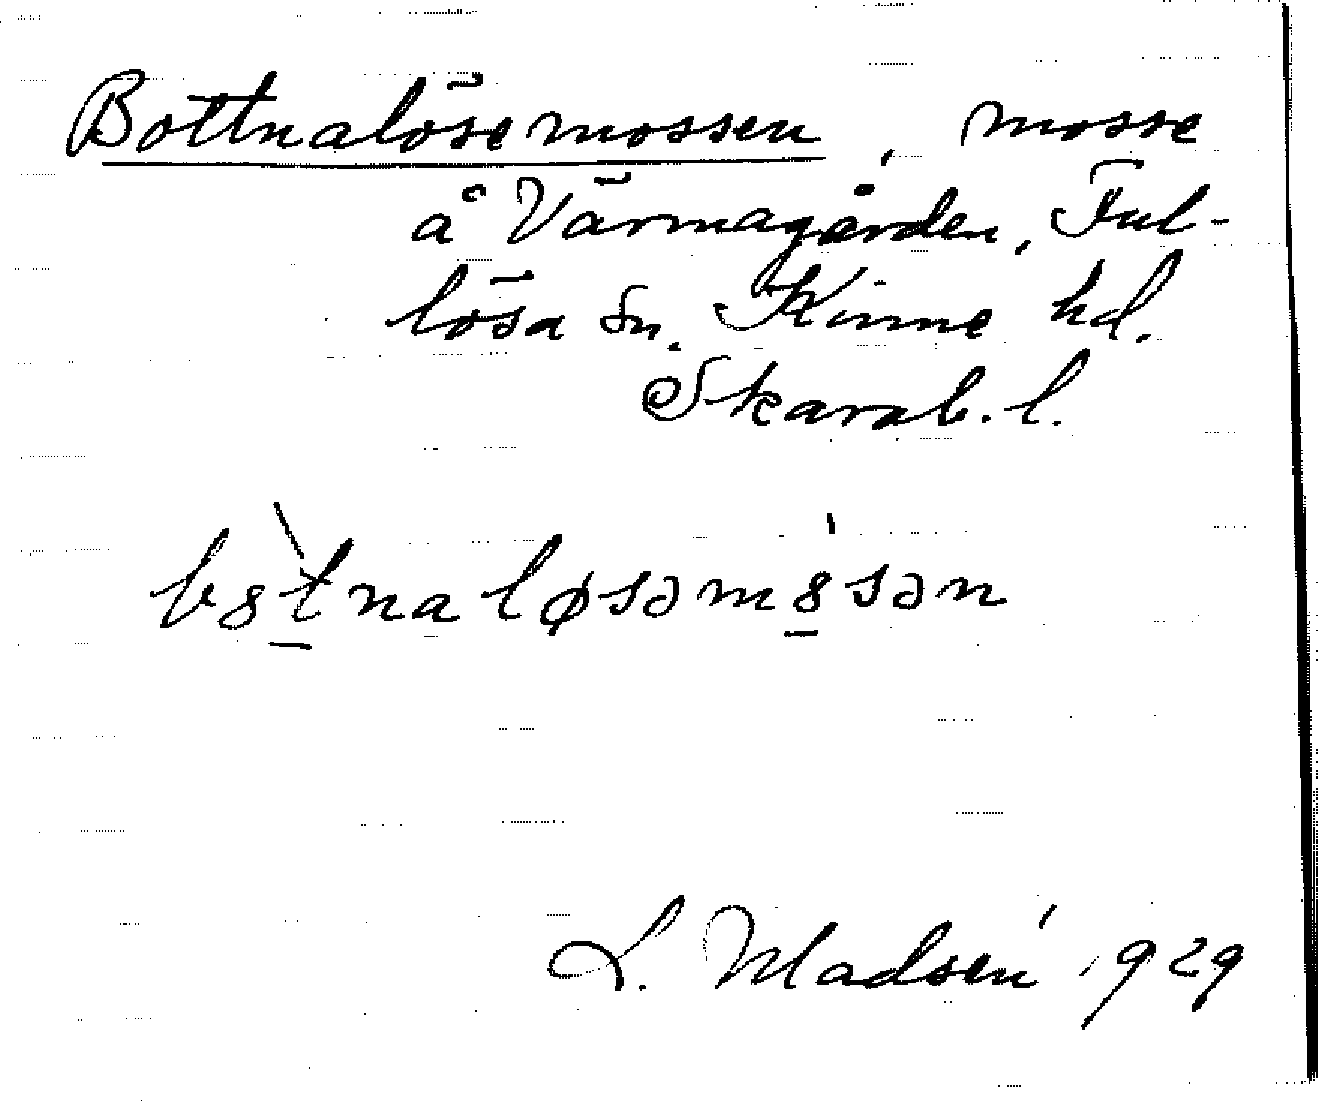 Bottnalösemossen, mosse
å Värmagården, Ful-
lösa sn. Kinne hd.
Skarab. l.
b8̀tnaløsəm8̍sən
L. Madsén 1929